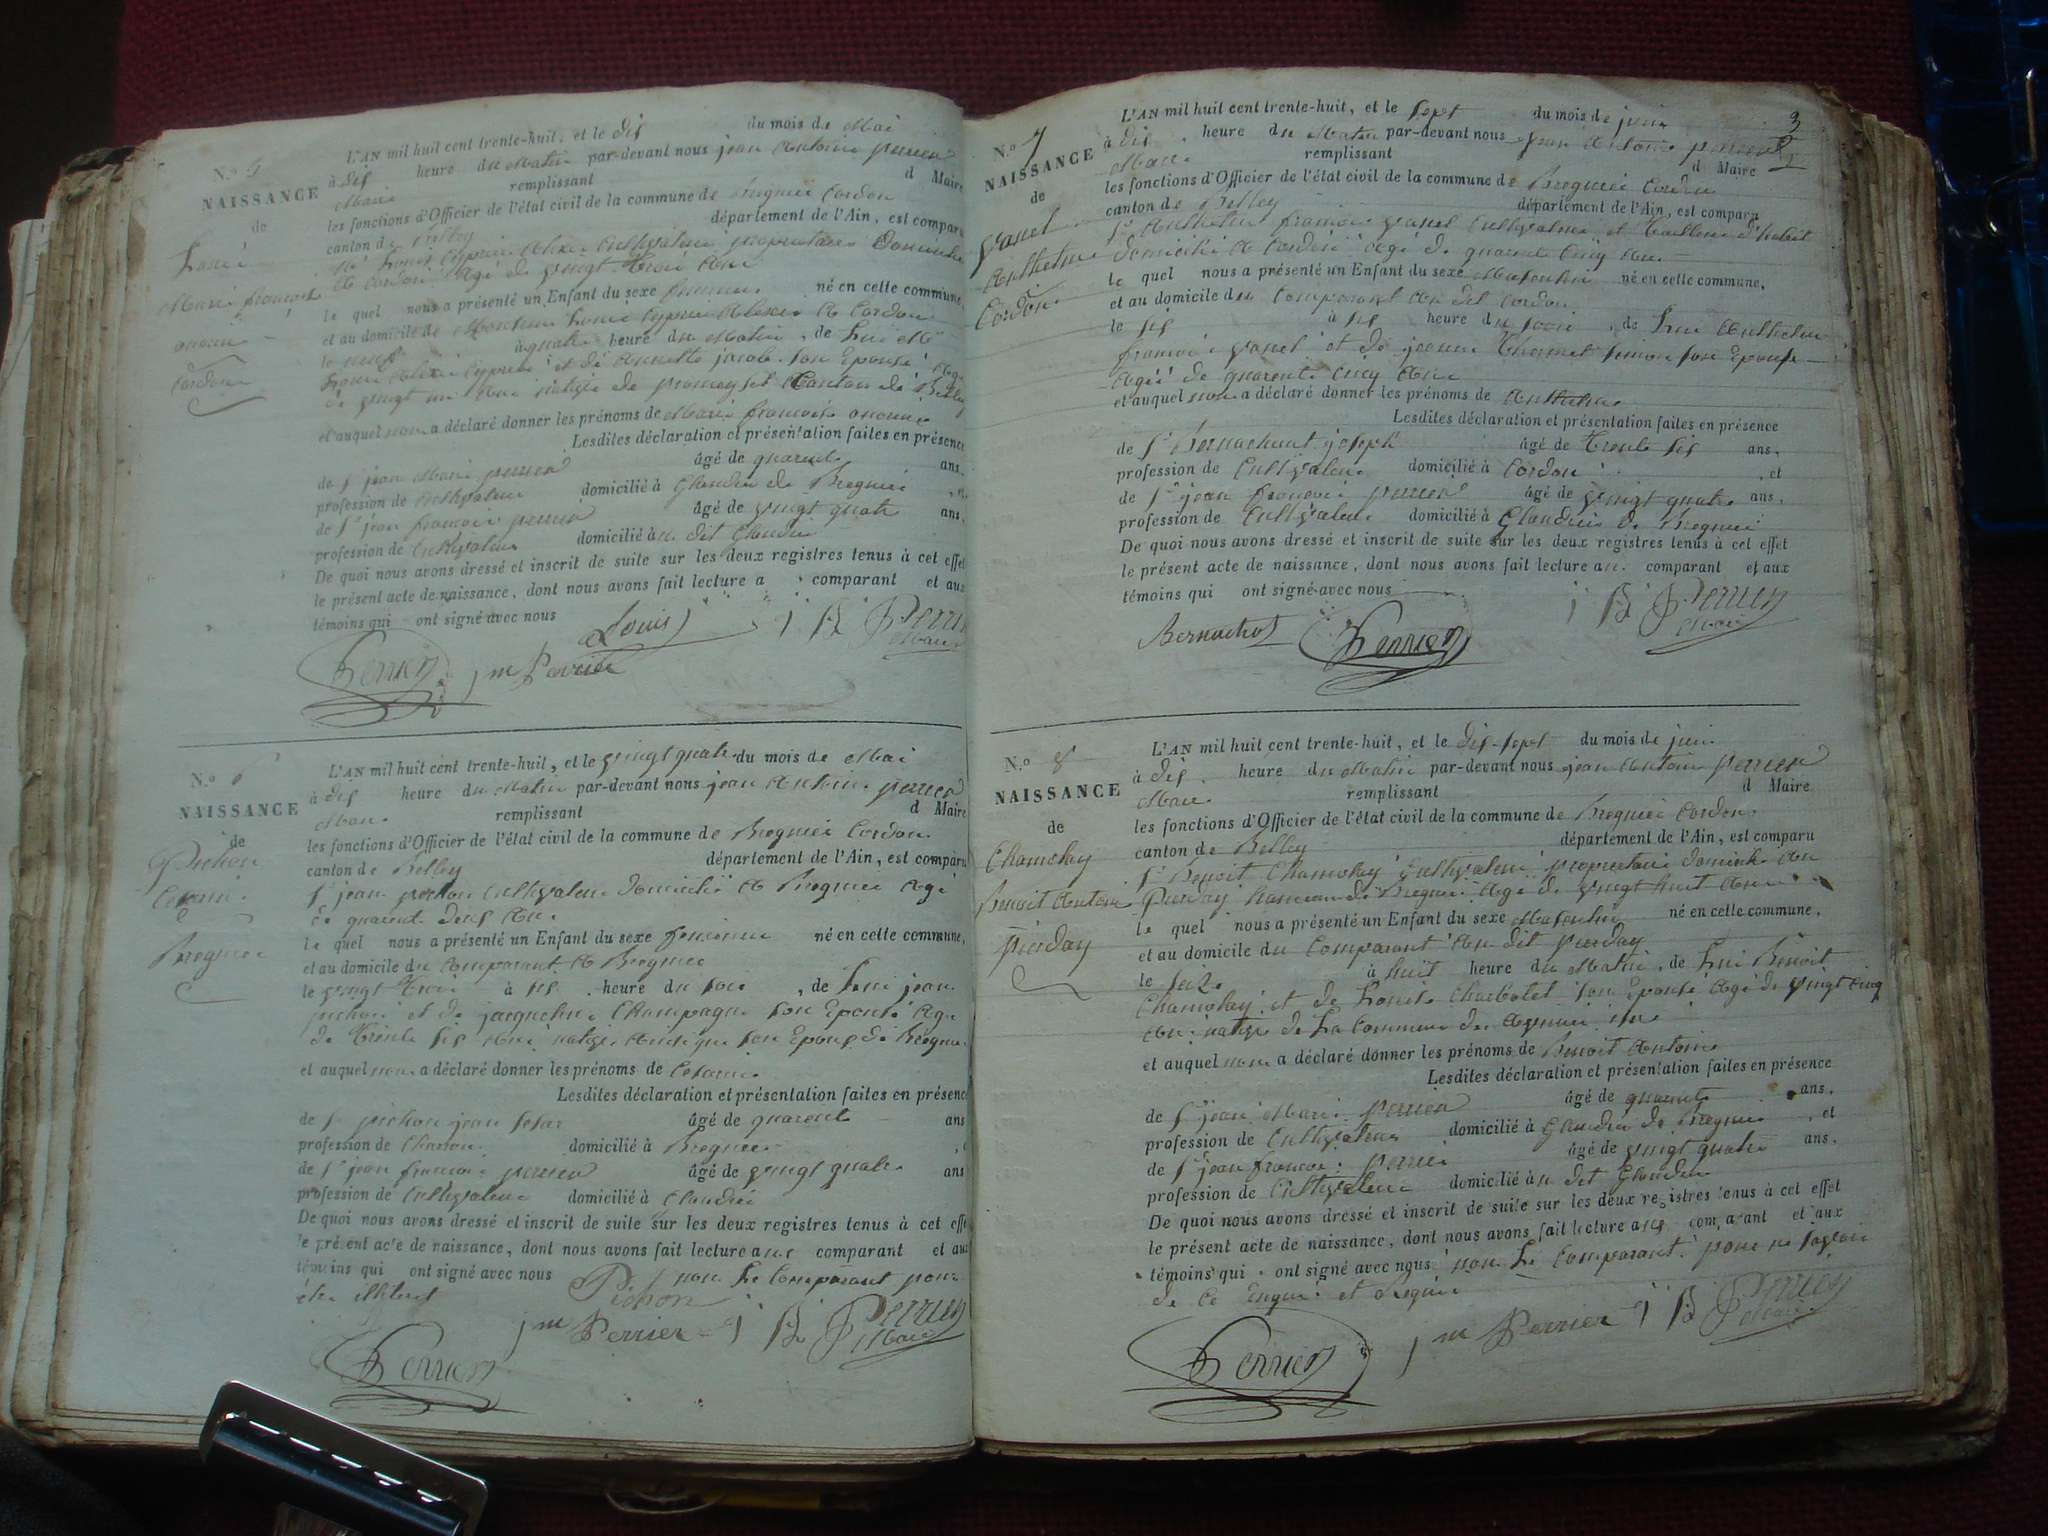 N.º 5
NAISSANCE
de
Marie françoise
Cordon
L'AN mil huit cent trente-huit, et le dix du mois de Mai
à dix heure du Matin par-devant nous jean Antoine perrier
Maire remplissant d Maire
les fonctions d'Officier de l'état civil de la commune de Bregnier Cordon
canton de Belley département de l'Ain, est comparu
Cultivateur proprietaire Domicilié
à Cordon Agé de vingt trois ans
le quel nous a présenté un Enfant du sexe feminin né en cette commune,
et au domicile de Louis Cyprien Alexis à Cordon
le neuf à quatre heure du Matin, de
et de Annette son Epouse Agé
de vingt un ans native de premeyzel Canton de Belley
et auquel nous a déclaré donner les prénoms de Marie françoise
Lesdites déclaration et présentation faites en présence
de Sr jean Marie perrier âgé de quarente ans,
profession de Cultivateur domicilié à Glandieu de Bregnier, et
de Sr jean françois perrier âgé de vingt quatre ans,
profession de Cultivateur domicilié à u dit Glandieu
De quoi nous avons dressé et inscrit de suite sur les deux registres tenus à cet effet
le présent acte de naissance, dont nous avons fait lecture a comparant et aux
témoins qui ont signé avec nous
Louis
Perrier
Maire
Perrier jm Perrier
N.º 6
NAISSANCE
de
Pichon
Bregnier
L'AN mil huit cent trente-huit, et le vingt quatre du mois de Mai
à dix heure du Matin par-devant nous jean Antoine perrier
Maire remplissant d Maire
les fonctions d'Officier de l'état civil de la commune de Bregnier Cordon
canton de Belley département de l'Ain, est comparu
Sr jean pichon Cultivateur Domicilié à Bregnier Agé
de quarente deux ans
le quel nous a présenté un Enfant du sexe feminin né en cette commune,
et au domicile du comparant à Bregnier
le vingt trois à six heure du soir, de Lui jean
pichon et de jacqueline Champagne son Epouse Age
de trente six ans native Ainsi que son Epoux de Bregnier
et auquel nous a déclaré donner les prénoms de
Lesdites déclaration et présentation faites en présence
de Sr pichon jean âgé de quarente ans
profession de domicilié à Bregnier
de Sr jean françois perrier âgé de vingt quatre ans
profession de Cultivateur domicilié à Glandieu
De quoi nous avons dressé et inscrit de suite sur les deux registres tenus à cet effet
le présent acte de naissance, dont nous avons fait lecture aux comparant et aux
témoins qui ont signé avec nous non Le Comparant pour
être illiteré
Pichon
jm Perrier Perrier
Maire
Perrier
3
N.º 7
NAISSANCE
de
vanel
Anthelme
Cordon
L'AN mil huit cent trente-huit, et le sept du mois de juin
à dix heure du Matin par-devant nous jean Antoine perrier
Maire remplissant d Maire
les fonctions d'Officier de l'état civil de la commune de Bregnier Cordon
canton de Belley département de l'Ain, est comparu
Sr Anthelme françois vanel Cultivateur et tailleur d'habit
domicilié à Cordon Agé de quarente cinq ans
le quel nous a présenté un Enfant du sexe Masculin né en cette commune,
et au domicile du comparant Au dit Cordon
le six à six heure du soir, de Lui Anthelme
françois vanel et de jeanne son Epouse
Agée de quarente cinq ans
et auquel nous a déclaré donner les prénoms de Anthelme
Lesdites déclaration et présentation faites en présence
de Sr joseph âgé de trente six ans,
profession de Cultivateur domicilié à Cordon, et
de Sr jean françois perrier âgé de vingt quatre ans,
profession de Cultivateur domicilié à Glandieu de Bregnier
De quoi nous avons dressé et inscrit de suite sur les deux registres tenus à cet effet
le présent acte de naissance, dont nous avons fait lecture au comparant et aux
témoins qui ont signé avec nous
Perrier
Maire
Bernachot Perrier
N.º 8
NAISSANCE
de
Chamolay
Benoit Antoine
L'AN mil huit cent trente-huit, et le dix-sept du mois de juin
à dix heure du Matin par-devant nous jean Antoine perrier
Maire remplissant d Maire
les fonctions d'Officier de l'état civil de la commune de Bregnier Cordon
canton de Belley département de l'Ain, est comparu
Sr Benoit Chamolay Cultivateur proprietaire domicilié au
hameau de Bregnier Agé de vingt huit ans
le quel nous a présenté un Enfant du sexe Masculin né en cette commune,
et au domicile du comparant Au dit
le seize à huit heure du Matin, de Lui Benoit
Chamolay et de Louise Charbotel son Epouse Agé de vingt cinq
ans native de La Commune de
et auquel nous a déclaré donner les prénoms de Benoit Antoine
Lesdites déclaration et présentation faites en présence
de Sr jean Marie perrier âgé de quarente ans,
profession de Cultivateur domicilié à Glandieu de Bregnier, et
de Sr jean françois perrier âgé de vingt quatre ans,
profession de Cultivateur domicilié à u dit Glandieu
De quoi nous avons dressé et inscrit de suite sur les deux registres tenus à cet effet
le présent acte de naissance, dont nous avons fait lecture aux comparant et aux
témoins qui ont signé avec nous non Le Comparant pour ne savoir
de ce Enquis et Requis
jm Perrier Perrier
Maire
Perrier